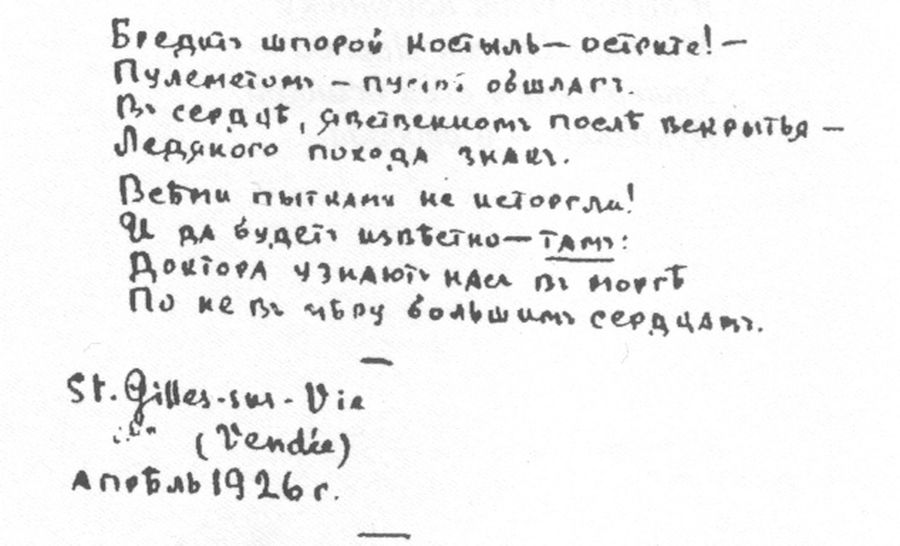 Бредитъ шпорой костыль — острите! —
Пулеметомъ — пустой обшлагъ.
Въ сердцѣ, явственномъ послѣ вскрытья —
Ледяного похода знакъ.
Всѣми пытками не исторгли!
И да будетъ извѣстно — тамъ:
Доктора узнаютъ насъ въ моргѣ
По не въ мѣру большимъ сердцамъ.
—
St. Gilles-sur-Vie
(Vendée)
апрѣль 1926 г.
—